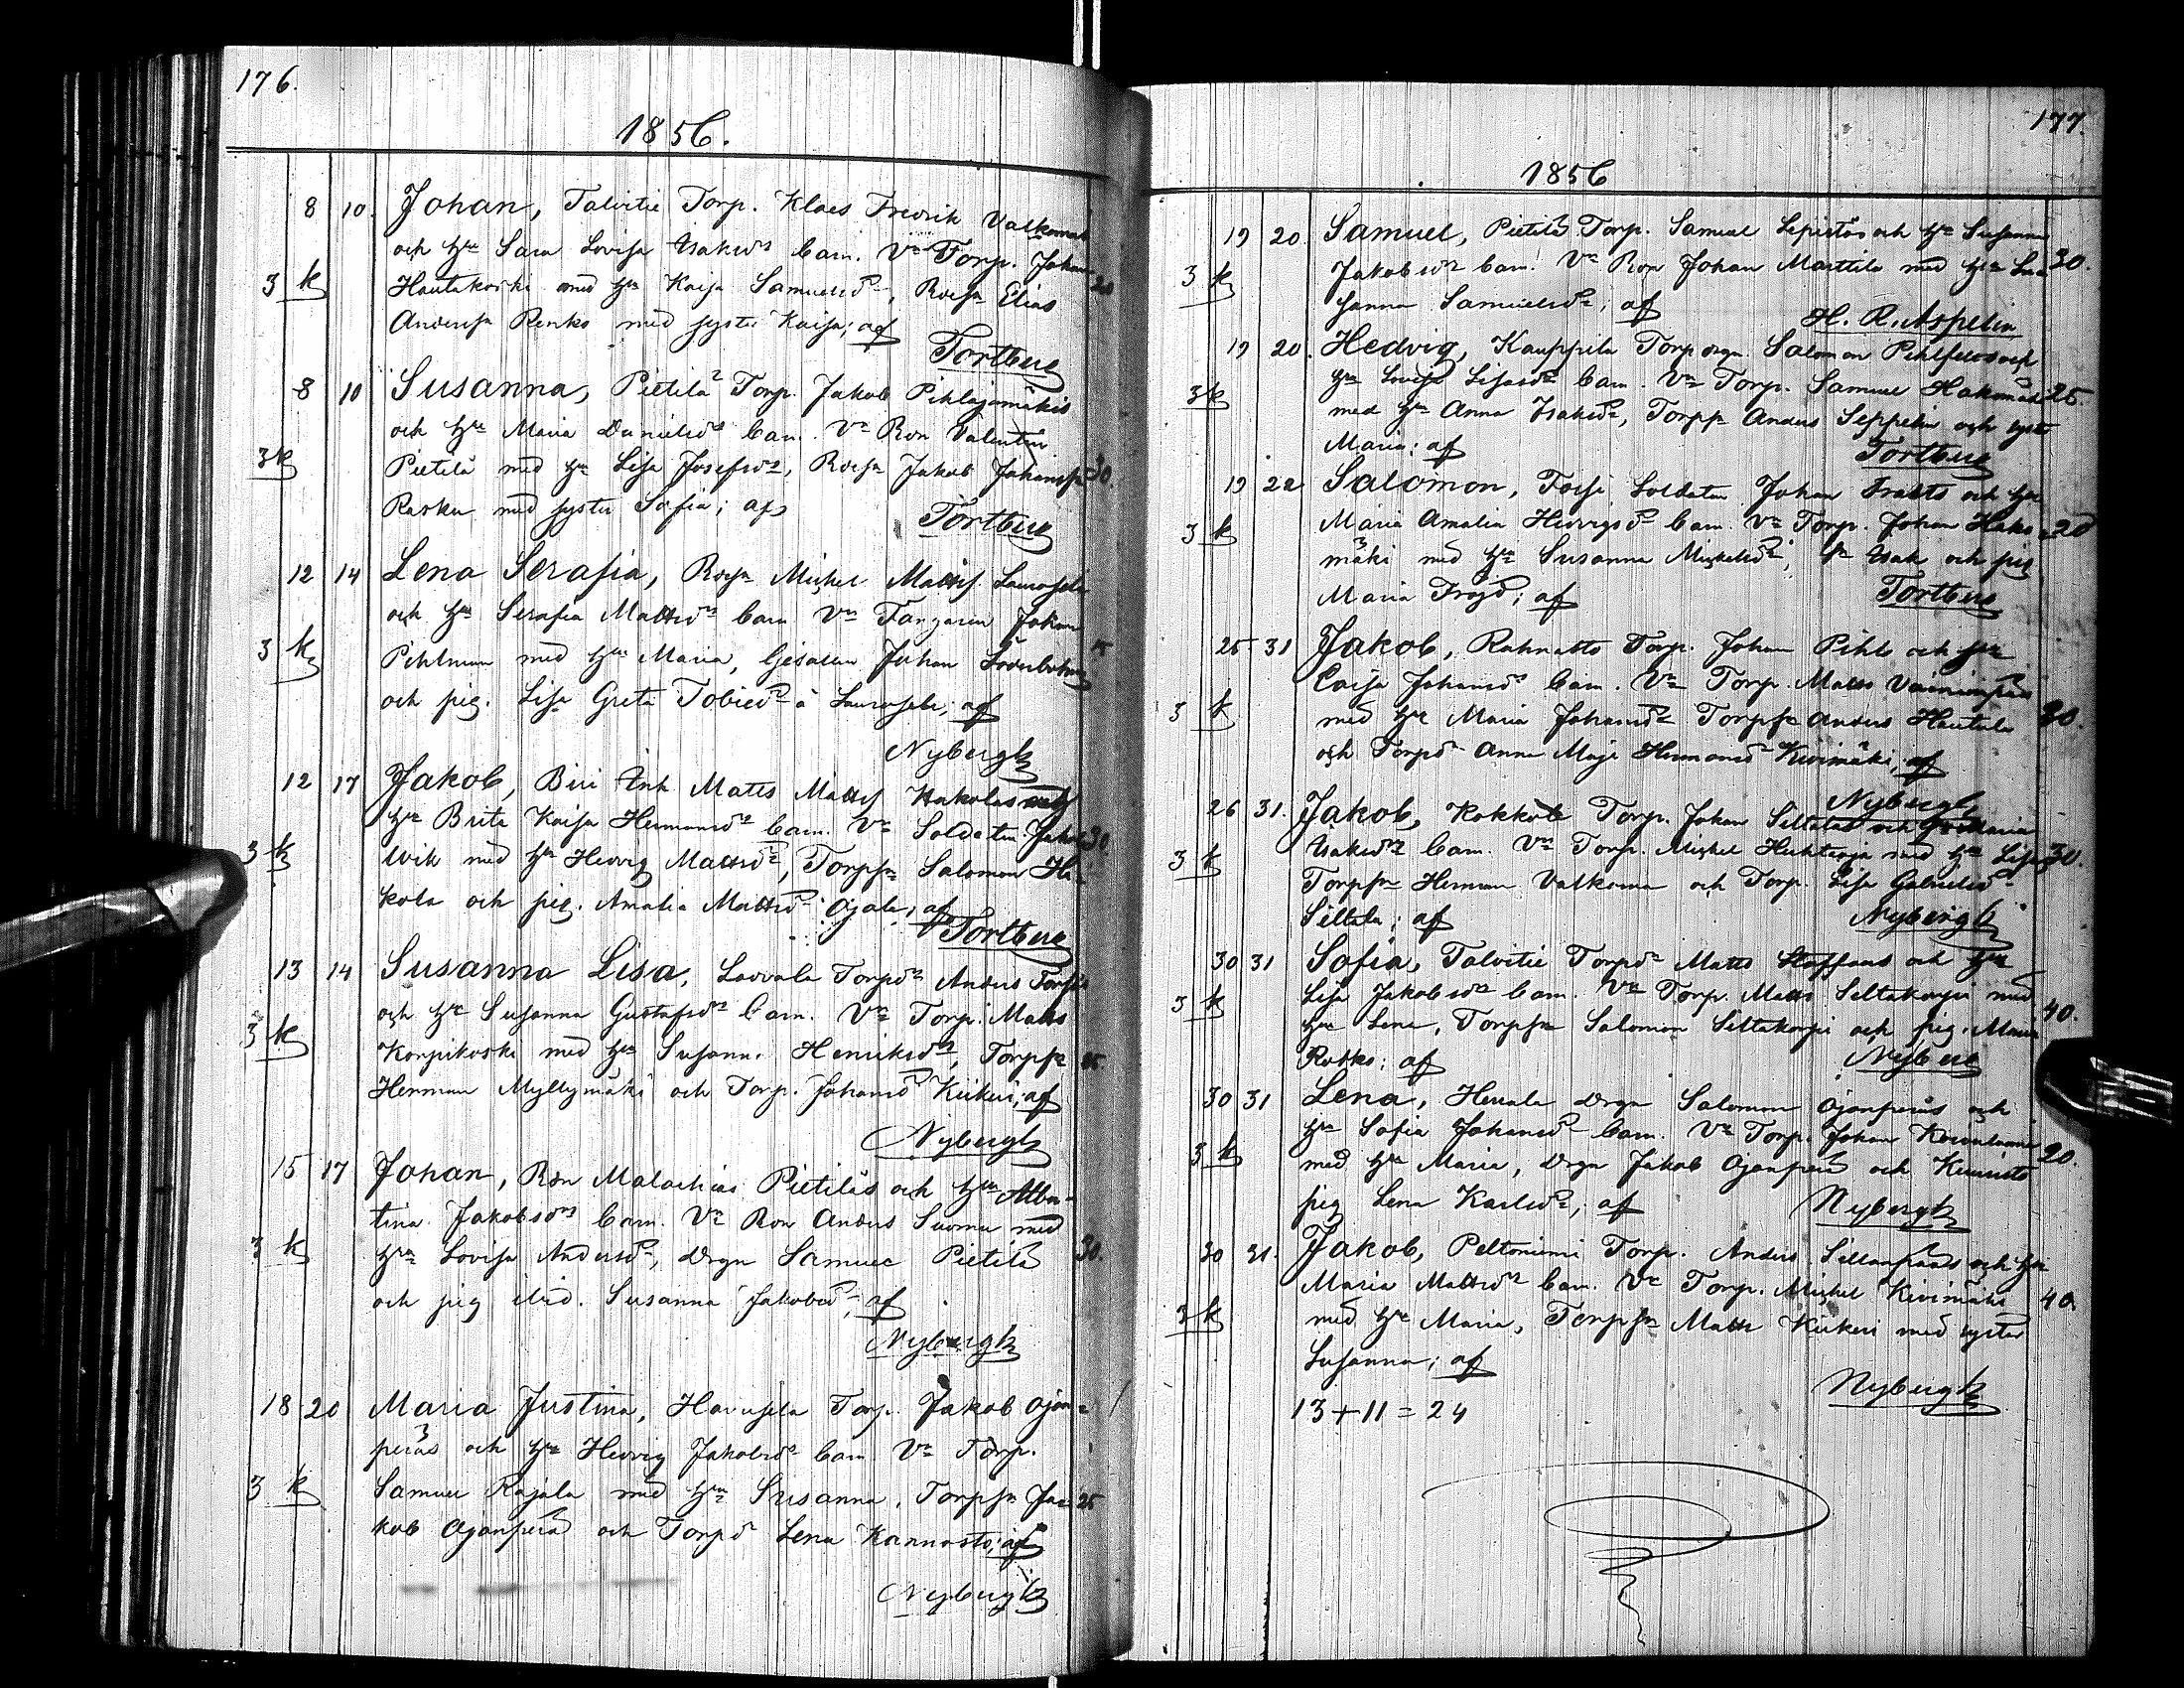 176.
1856.
8 10. Johan, Talvitie Torp. Klaes Fredrik Valkamas
och hu Sara Lovisa Isaksdr Barn. Vn Torp. Johan
3 k Hautakoski med hu Kaisa Samuelsdr, Roesn Elias 20
Anderssn Renko med syster Kaisa; af
Tortberg
8 10 Susanna, Pietilä Torp. Jakob Pihlajamäkis
och hu Maria Danielsdr Barn. Vn Ron Valentin
3 k Pietilä med hu Lisa Josefsdr, Roesn Jakob Johanssn 30.
Rasku med syster Sofia; af
Tortberg
12 14 Lena Serafia, Roesn Michel Mattss.
och hu Serafia Mattsdr Barn Vn Johan
3 k Pihlman med hu Maria, Gesällen Johan Söderholm
och pig. Lisa Greta Tobiedr å; af
Nybergh
12 17 Jakob, Biri Inh Matts Mattss Hakolas och
hu Brita Kaisa Hermansdr Barn. Vn Soldaten Jakob 30
3 k Wik med hu Hedvig Mattsdr, Torpsn Salomon Ha-
kola och pig. Amalia Mattsdr Ojala; af
Tortberg
13 14 Susanna Lisa, Torp Anders
och hu Susanna Gustafsdr Barn. Vn Torp. Matts
3 k Korpikoski med hu Susanna Henriksdr, Torpsn 25.
Herman Myllymäki och Torp. Johansdr Kiikeri; af
Nybergh
15 17 Johan, Ron Malachias Pietiläs och hu Alber-
tina Jakobsdrs Barn. Vn Ron Anders Luoma med
3 k hu Lovisa Andersdr, Drgn Samuel Pietilä 30.
och pig ibid. Susanna Jakobsdr; af
Nybergh
18 20 Maria Justina, Torp. Jakob Ojan-
peräs och hu Hedvig Jakobsdr Barn Vn Torp.
3 k Samuel Rajala med hu Susanna, Torpsn Ja- 25
kob Ojanperä och Torpdr Lena Kannosto; af
Nybergh
177.
1856
19 20. Samuel, Pietilä Torp. Samuel Lepistös och hu Susanna
3 k Jakobsdr Barn. Vn Ron Johan Marttila med hu Su- 30.
sanna Samuelsdr; af
H. R. Aspelin
19 20. Hedvig, Kauppila Torpdrgn Salomon och
hu Lovisa Lisasdr Barn. Vn Torp. Samuel Hakomäki 25.
3 k med hu Anna Isaksdr, Torpsn Anders Seppelin och syster
Maria; af
Tortberg
19 22 Salomon, Forsi Soldaten Johan och hu
3 k Maria Amalia Hedvigsdr Barn. Vn Torp. Johan Hako- 20
mäki med hu Susanna Michelsdr, sn Isak och pig
Maria Fröjd; af
Tortberg
25 31 Jakob, Torp. Johan Pihls och hu
Caisa Johansdr Barn. Vn Torp. Matts Vainionpää
3 k med hu Maria Johansdr Torpsn Anders Hautala 30.
och Torpdr Anna Maja Hermansdr Kivimäki; af
Nybergh
26 31. Jakob, Kokkola Torp. Johan Siltalas och hu Maria
3 k Isaksdr Barn. Vn Torp. Michel Huhtaoja med hu Lisa 30.
Torpsn Herman Valkama och Torp. Lisa Gabrielsdr
Siltala; af
Nybergh
30 31 Sofia, Talvitie Torpdr Matts Staffans och hu
3 k Lisa Jakobsdr Barn. Vn Torp. Matts Siltakorpi med 40.
hu Lena, Torpsn Salomon Siltakorpi och pig. Maria
Rutko; af
Nyberg
30 31 Lena, Herrala Drgn Salomon Ojanperäs och
hu Sofia Johansdr Barn. Vn Torp. Johan 20.
3 k med hu Maria, Drgn Jakob Ojanperä och
pig Lena Karlsdr; af
Nybergh
30 31. Jakob, Peltoniemi Torp. Anders Sillanpääs och hu
Maria Mattsdr Barn. Vn Torp. Michel Kivimäki 40.
3 k med hu Maria, Torpsn Matts Kiikeri med syster
Susanna; af
Nybergh
13 + 11 = 24